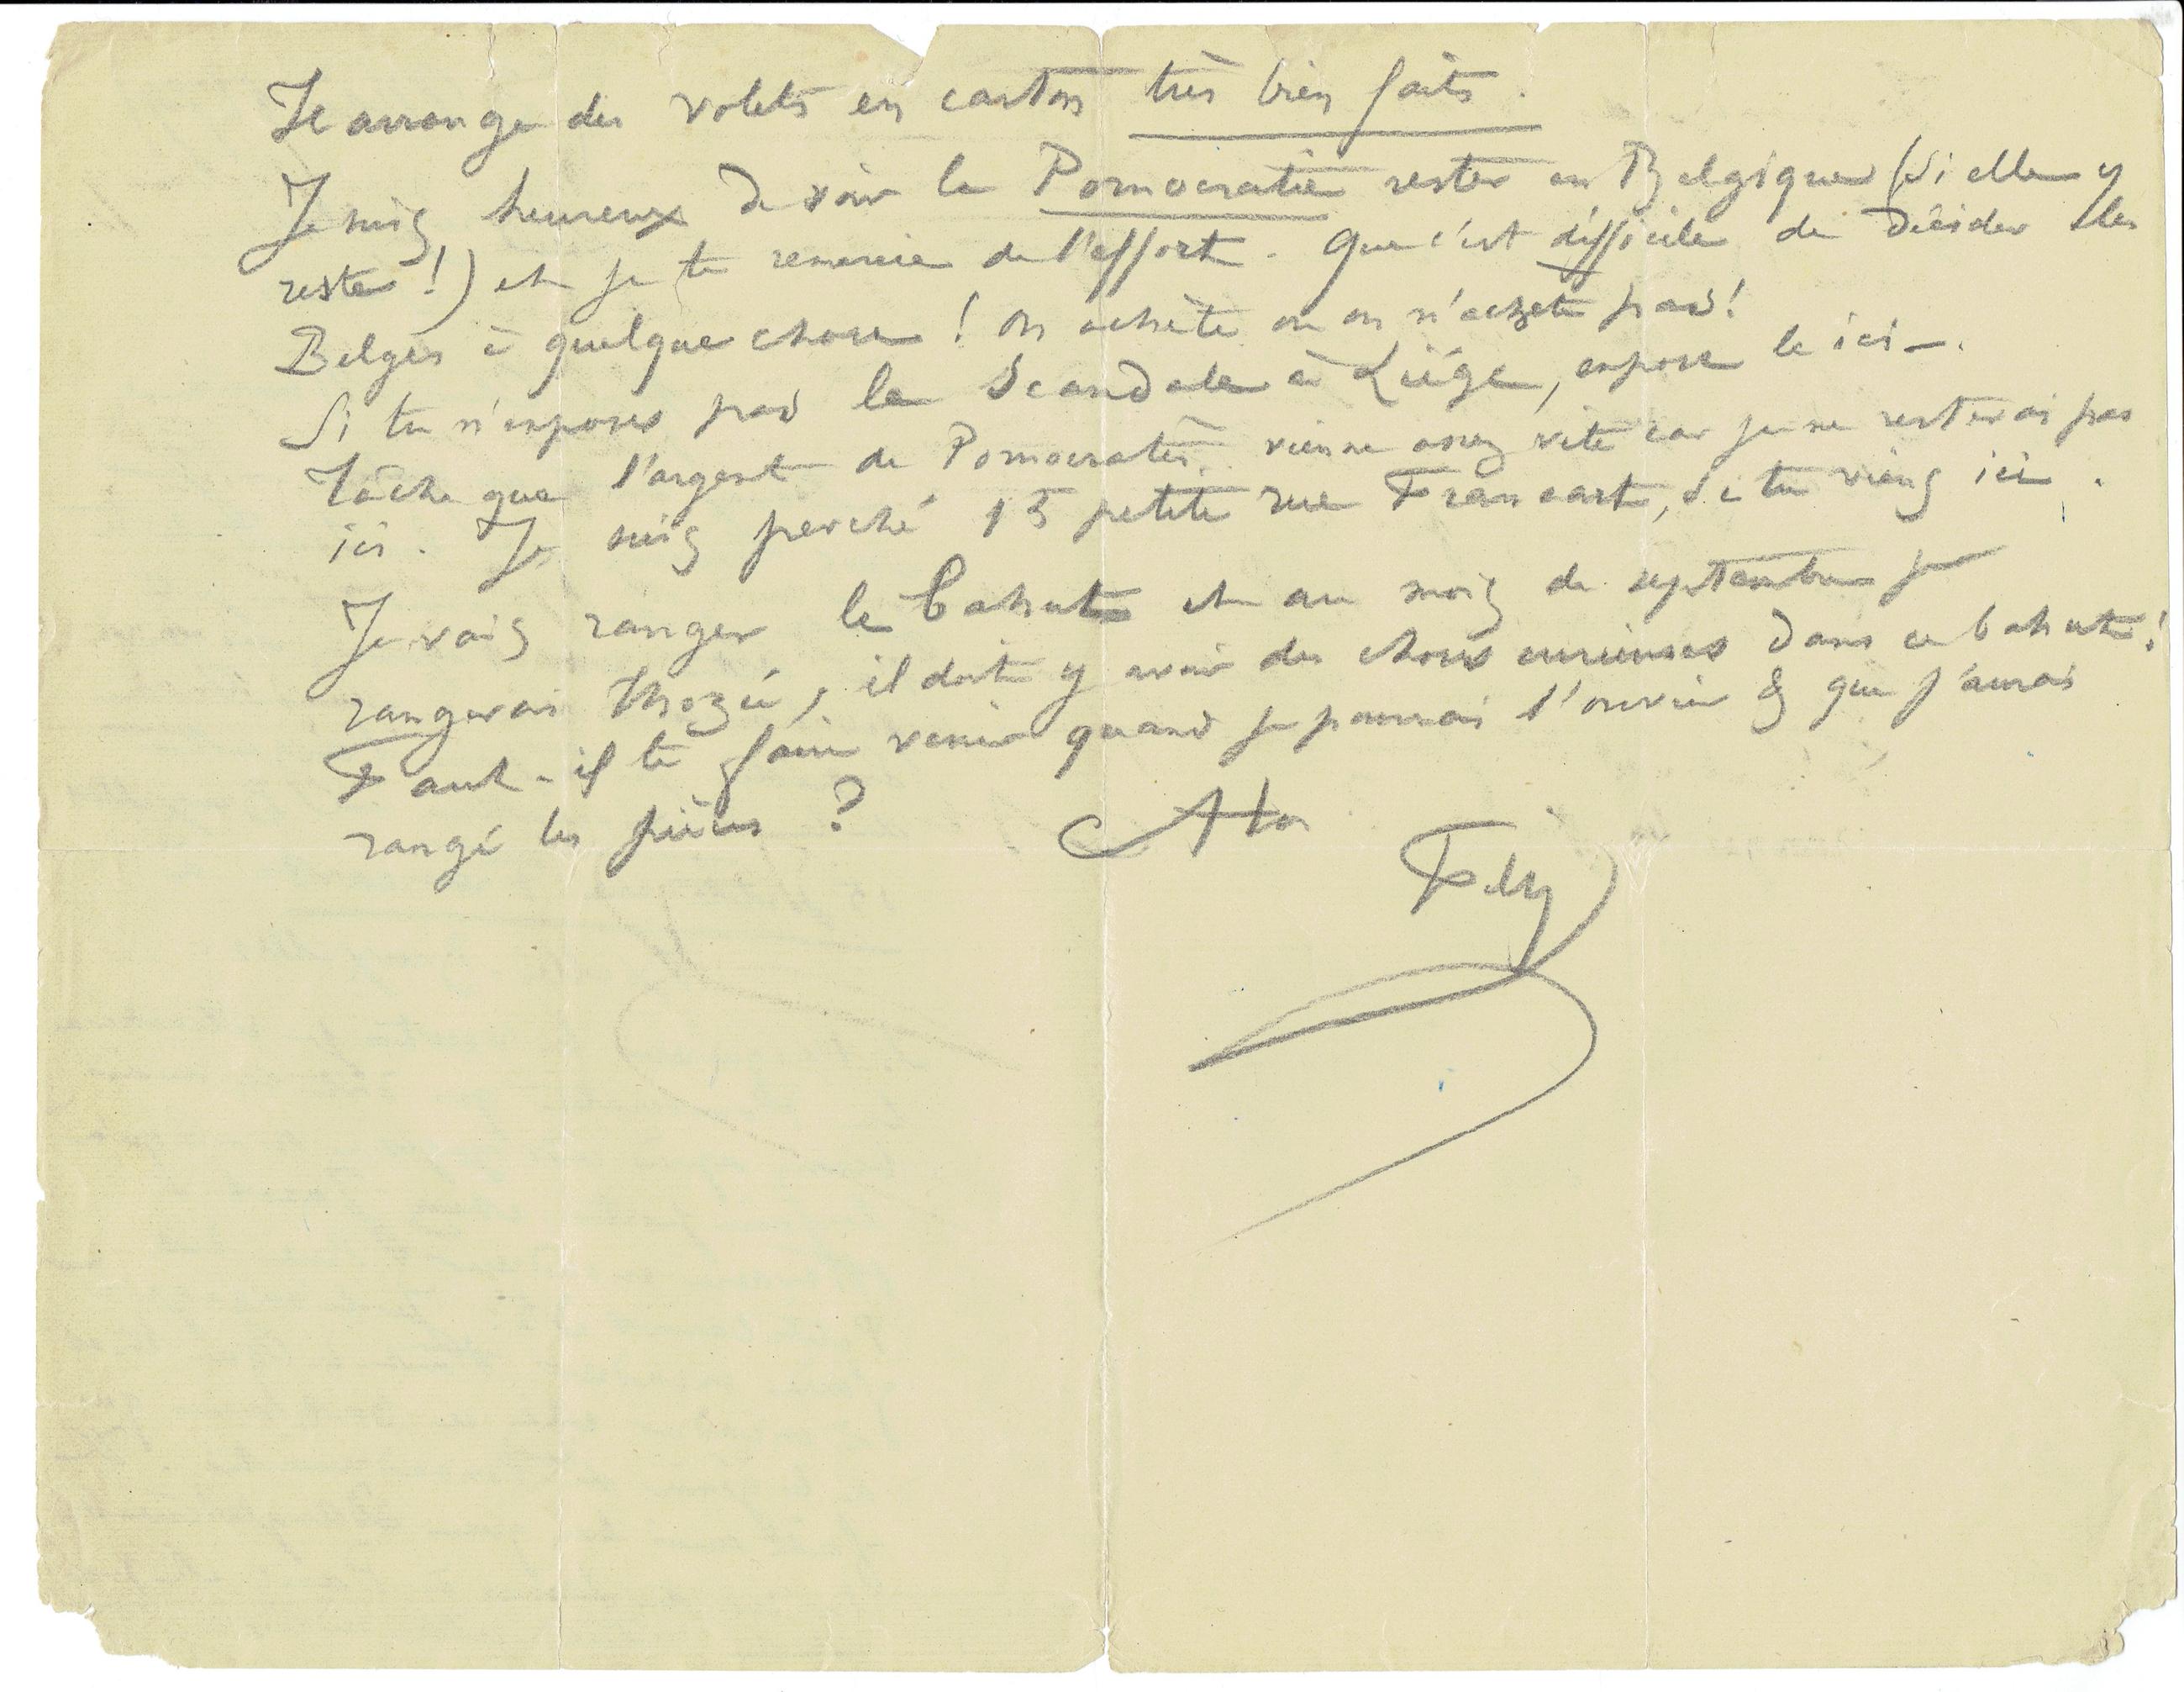 Je arrange des volets en carton très bien faits.
Je suis heureux de voir la Pornocratie rester en Belgique (si elle y
reste !) et je te remercie de l'effort. Que c'est difficile de décider les
Belges à quelque chose ! On achète ou on n'achete pas !
Si tu n'exposes pas le Scandale à Liége, expose le ici –.
Tâche que l'argent de Pornocratès vienne assez vite car je ne resterai pas
ici. Je suis perché 15 petite rue Francart, si tu viens ici.
Je vais ranger le bahut et au mois de septembre je
rangerai Thozée, il doit y avoir des choses curieuses dans ce bahut !
Faut-il te faire venir quand je pourrai l'ouvrir & que j'aurai
rangé les pièces ?
Fély